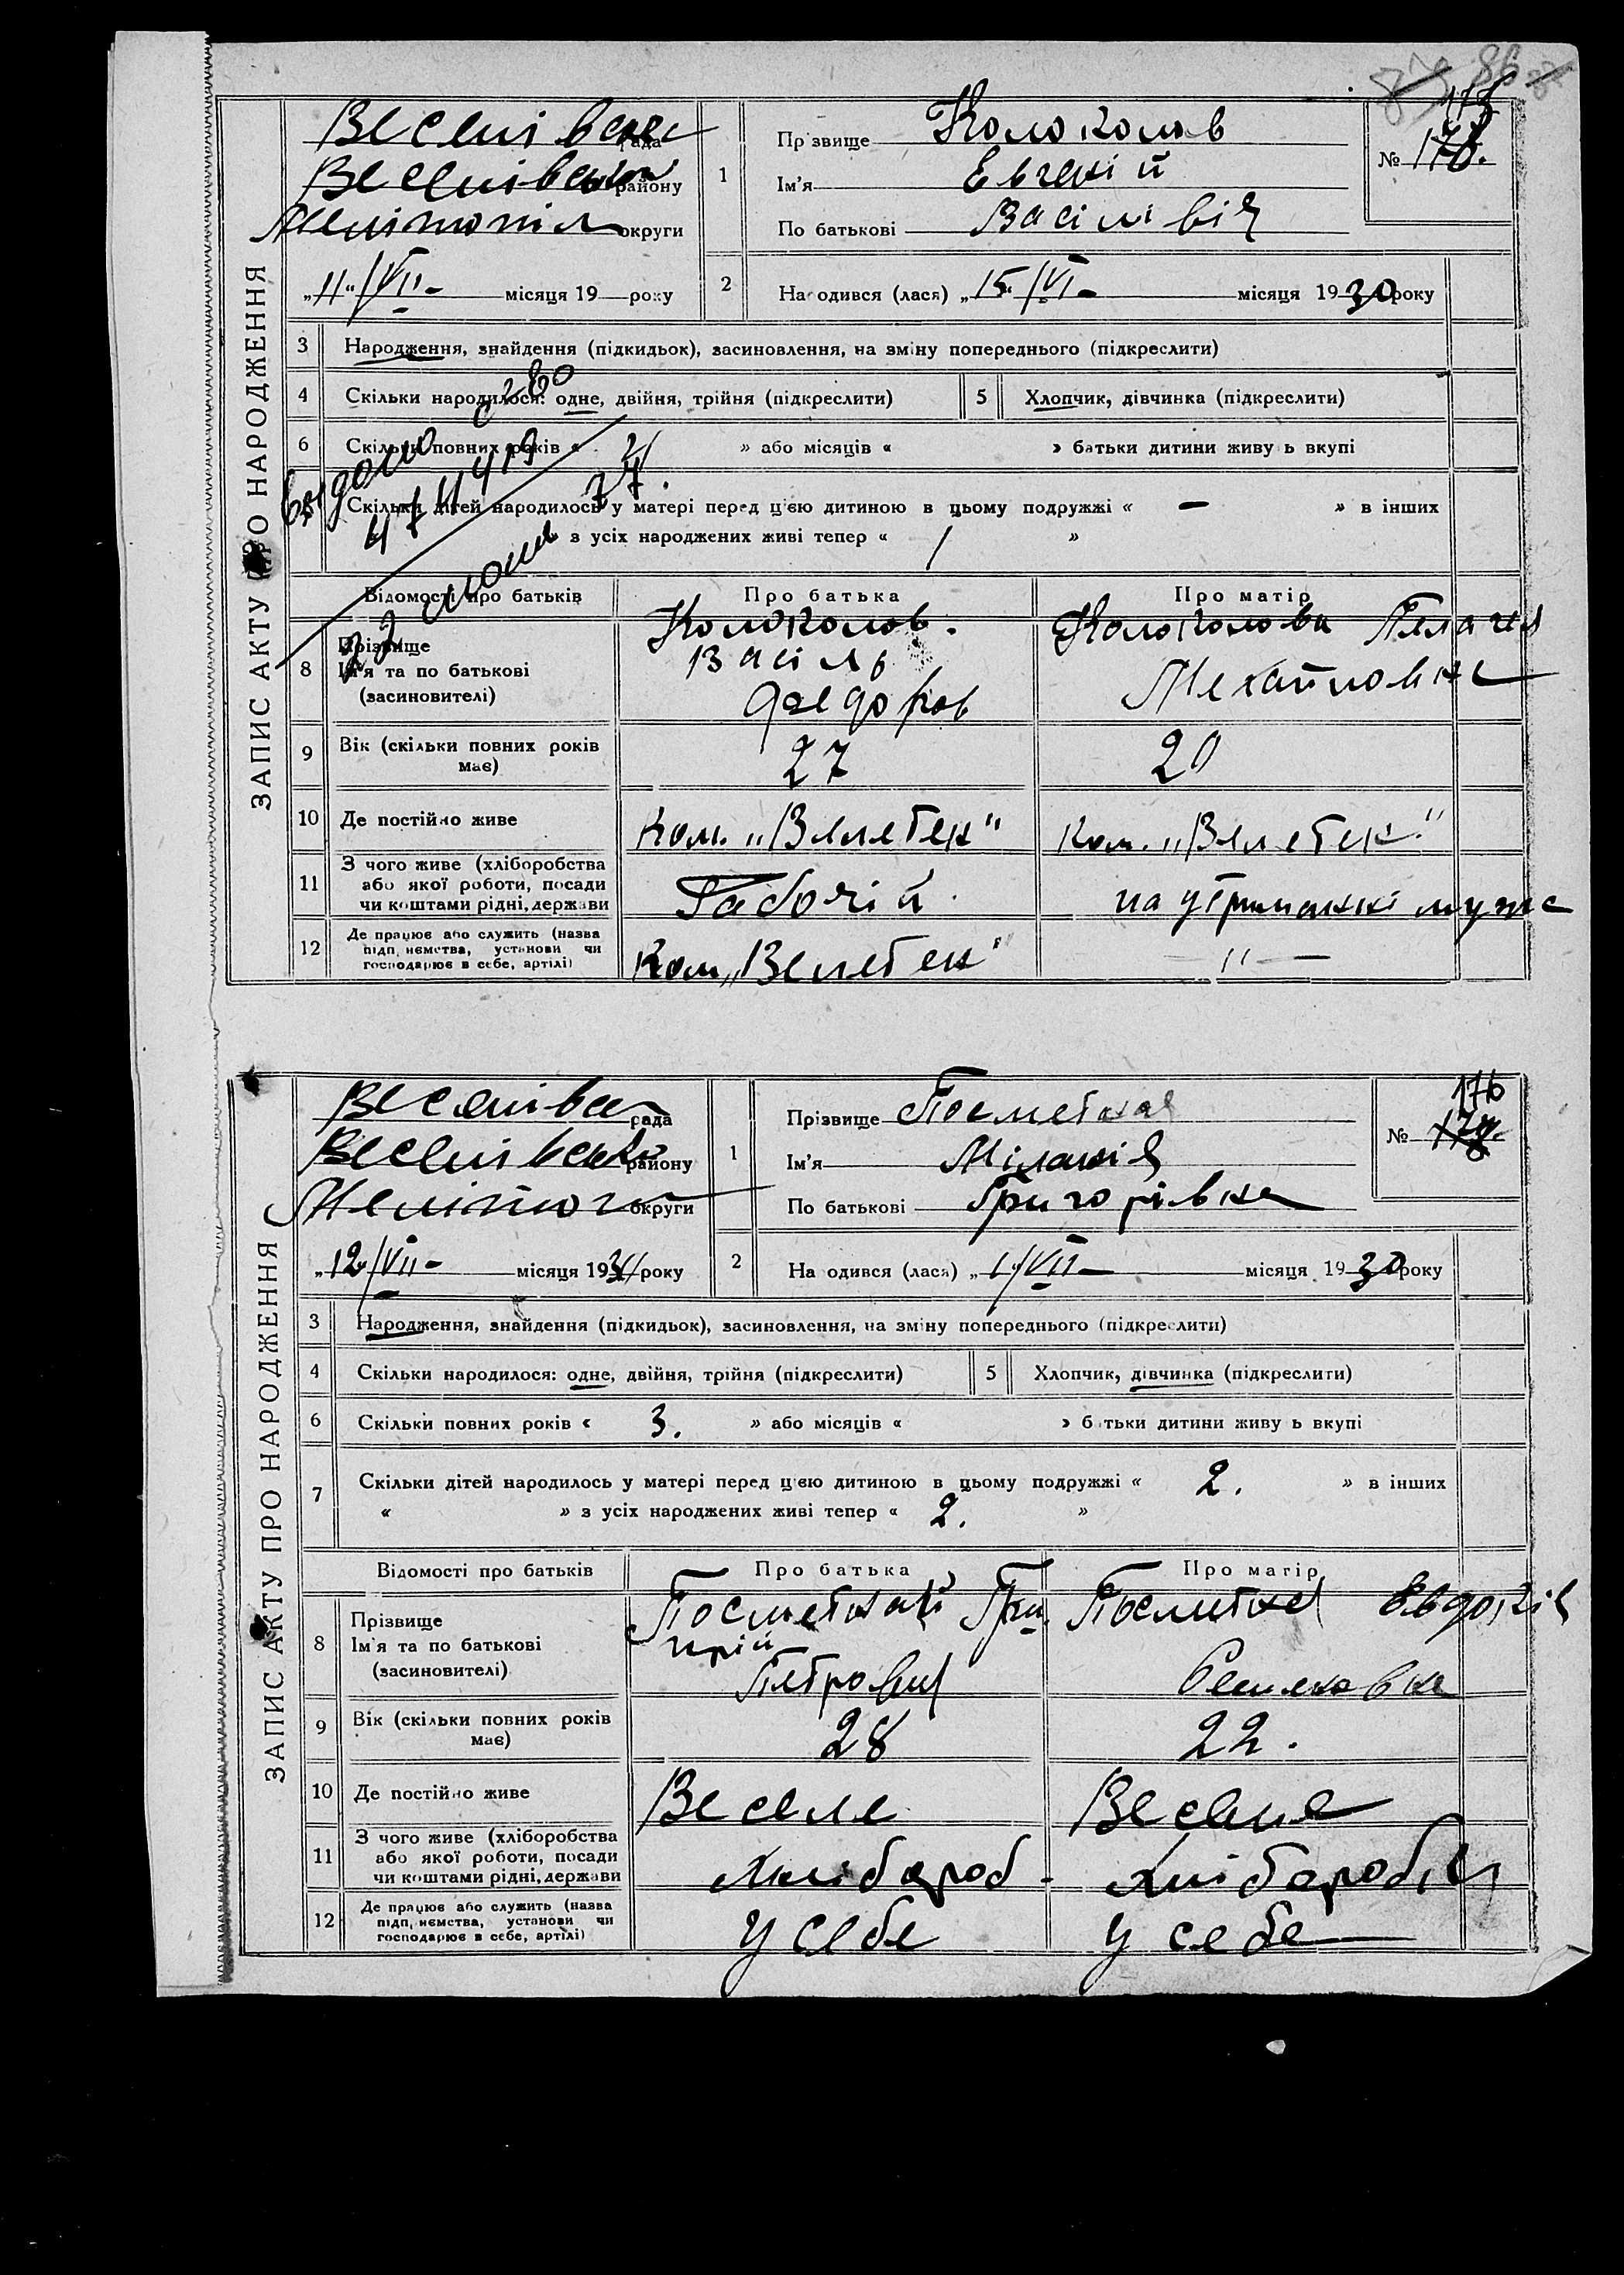 86
ЗАПИС АКТУ ПРО НАРОДЖЕННЯ
Веселівська рада
Веселівськ району
Мелітопіл округи
„11" VII- місяця 19 року
1 Прізвище Колоколов
Ім'я Евгеній
По батькові Васілівіч
№
2 Народився (лася) „15 VI- місяця 1930 року
3 Народження, знайдення (підкидьок), засиновлення, на зміну попереднього (підкреслити)
4 Скільки народилося: одне, двійня, трійня (підкреслити)
5 Хлопчик, дівчинка (підкреслити)
6 Скільки повних років « » або місяців « » батьки дитини живуть вкупі
Скільки дітей народилось у матері перед цією дитиною в цьому подружжі « — » в інших
з усіх народжених живі тепер « 1 »
Відомості про батьків Про батька Про матір
8 Прізвище
Ім'я та по батькові
(засновителі)
Колоколов.
Васіль
Федоров
Колоколова Пелагея
Механловна
9 Вік (скільки повних років має) 27 20
10 Де постійно живе Ком. „Велетен" Ком. „Велетен."
11 З чого живе (хліборобства або якої роботи, посади чи коштами рідні, держави Рабочій на утриманні мужа
12 Де працює або служить (назва підприємства, установи чи господарює в себе, артілі) Ком „Велетен" — " —
ЗАПИС АКТУ ПРО НАРОДЖЕННЯ
Веселівск рада
Веселівськ району
Мелітоп округи
„12 VII- місяця 19 року
1 Прізвище Посметная
Ім'я Міланія
По батькові Григорівна
№ 176
2 Народився (лася) „1 VII- місяця 1930 року
3 Народження, знайдення (підкидьок), засиновлення, на зміну попереднього (підкреслити)
4 Скільки народилося: одне, двійня, трійня (підкреслити)
5 Хлопчик, дівчинка (підкреслити)
6 Скільки повних років « 3. » або місяців « » батьки дитини живуть вкупі
7 Скільки дітей народилось у матері перед цією дитиною в цьому подружжі « 2. » в інших
« » з усіх народжених живі тепер « 2. »
Відомості про батьків Про батька Про матір
8 Прізвище
Ім'я та по батькові
(засиновителі)
Посметнай Григорій
Петровіч
Посметная Евдокія
Семеновна
9 Вік (скільки повних років має) 28 22.
10 Де постійно живе Веселе Веселе
11 З чого живе (хліборобства або якої роботи, посади чи коштами рідні, держави Хлібороб- Хлібороби
12 Де працює або служить (назва підприємства, установи чи господарює в себе, артілі) у себе у себе